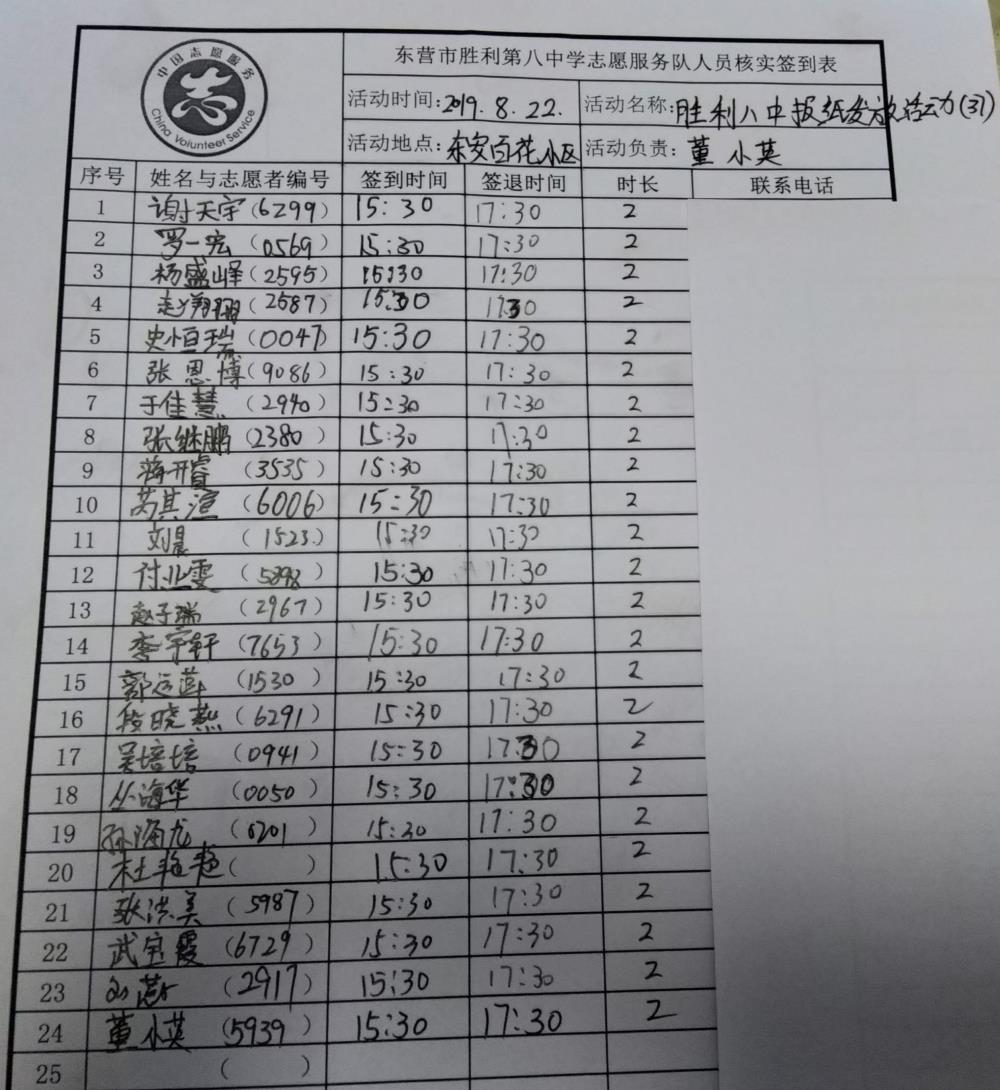 中国志愿服务
志
China Volunteer Service
东营市胜利第八中学志愿服务队人员核实签到表
活动时间:2019.8.22. 活动名称:胜利八中报纸发放活动(37)
活动地点:东安百花小区 活动负责:董小英
序号 姓名与志愿者编号 签到时间 签退时间 时长 联系电话
1 谢天宇(6299) 15:30 17:30 2
2 罗一宏(0569) 15:30 17:30 2
3 杨盛峄(2595) 15:30 17:30 2
4 赵翔翮(2587) 15:30 17:30 2
5 史恒瑞(0047) 15:30 17:30 2
6 张恩博(9086) 15:30 17:30 2
7 于佳慧(2940) 15:30 17:30 2
8 张继鹏(2380) 15:30 17:30 2
9 蒋开睿(3535) 15:30 17:30 2
10 芮其渲(6006) 15:30 17:30 2
11 刘晨(1523.) 15:30 17:30 2
12 付业雯(5898) 15:30 17:30 2
13 赵子瑞(2967) 15:30 17:30 2
14 李宇轩(7653) 15:30 17:30 2
15 郭运莲(1530) 15:30 17:30 2
16 段晓燕(6291) 15:30 17:30 2
17 吴培培(0941) 15:30 17:30 2
18 丛海华(0050) 15:30 17:30 2
19 孙海龙(0201) 15:30 17:30 2
20 杜艳艳( ) 15:30 17:30 2
21 张洪美(5987) 15:30 17:30 2
22 武宝霞(6729) 15:30 17:30 2
23 (2917) 15:30 17:30 2
24 董小英(5939) 15:30 17:30 2
25 ( )